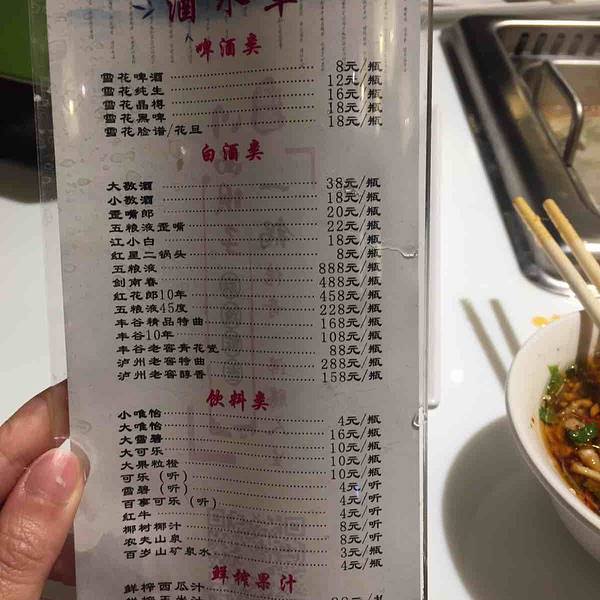 酒水单
啤酒类
雪花啤酒 8元/瓶
雪花纯生 12元/瓶
雪花晶樽 16元/瓶
雪花黑啤 18元/瓶
雪花脸谱/花旦 18元/瓶
白酒类
大敬酒 38元/瓶
小敬酒 18元/瓶
歪嘴郎 20元/瓶
五粮液歪嘴 22元/瓶
江小白 18元/瓶
红星二锅头 8元/瓶
五粮液 888元/瓶
剑南春 488元/瓶
红花郎10年 458元/瓶
五粮液45度 228元/瓶
丰谷精品特曲 168元/瓶
丰谷10年 108元/瓶
丰谷老窖青花瓷 88元/瓶
泸州老窖特曲 288元/瓶
泸州老窖醇香 158元/瓶
饮料类
小唯怡 4元/瓶
大唯怡 16元/瓶
大雪碧 10元/瓶
大可乐 10元/瓶
大果粒橙 10元/瓶
可乐（听） 4元/听
雪碧（听） 4元/听
百事可乐（听） 4元/听
红牛 8元/听
椰树椰汁 8元/听
农夫山泉 3元/瓶
百岁山矿泉水 4元/瓶
鲜榨果汁
鲜榨西瓜汁